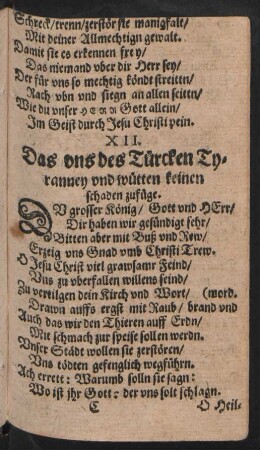 Schreck/trenn/zerstör sie manigfalt/
Mit deiner Allmechtign gewalt.
Damit sie es erkennen frey/
Das niemand vber dir Herr sey/
Der für vns so mechtig köndt streitten/
Rach vbn vnd siegn an allen seitten/
Wie du vnser HERR Gott allein/
Im Geist durch Jesu Christi pein.
XII.
Das vns des Türcken Ty-
ranney vnd wütten keinen
schaden zufüge.
DV grosser König/ Gott vnd HErr/
Dir haben wir gesündigt sehr/
Bitten aber mit Buß vnd Rew/
Erzeig vns Gnad vmb Christi Trew.
O Jesu Christ viel grawsamr Feind/
Vns zu vberfallen willens seind/
Zu vertilgen dein Kirch vnd Wort/ (mord.
Drawn auffs ergst mit Raub/ brand vnd
Auch das wir den Thieren auff Erdn/
Mit schmach zur speise sollen werdn.
Vnser Städt wollen sie zerstören/
Vns tödten gefenglich wegführn.
Ach errett: Warumb solln sie sagn:
Wo ist jhr Gott: der vns solt schlagn.
C O Heil-